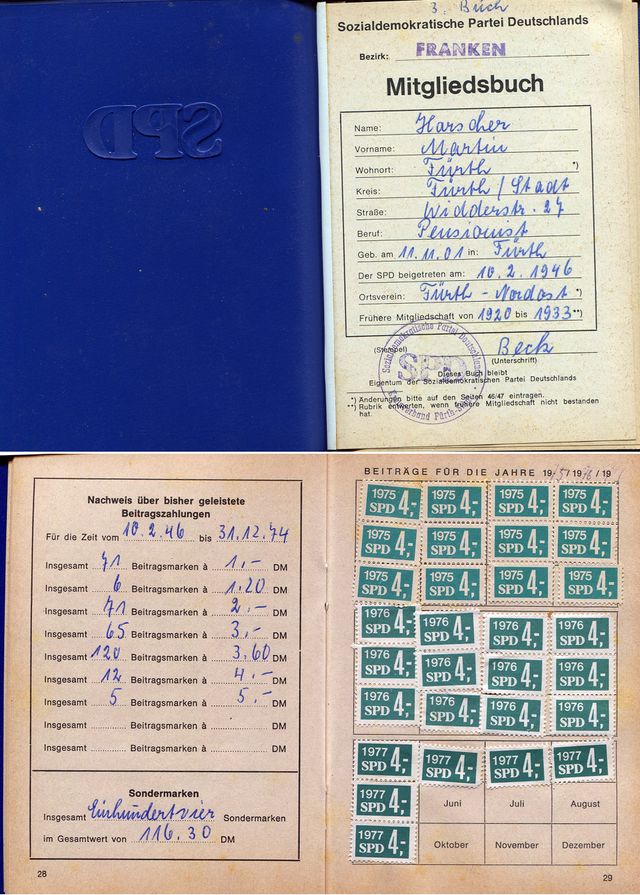 SPD
3. Buch
Sozialdemokratische Partei Deutschlands
Bezirk: FRANKEN
Mitgliedsbuch
Name: Harscher
Vorname: Martin
Wohnort: Fürth *)
Kreis: Fürth / Stadt
Straße: Widderstr. 27
Beruf: Pensionist
Geb. am 11.11.01 in: Fürth
Der SPD beigetreten am: 10.2.1946
Ortsverein: Fürth - Nordost *)
Frühere Mitgliedschaft von 1920 bis 1933 **)
Beck
(Stempel) (Unterschrift)
Sozialdemokratische Partei Deutschlands
SPD
Dieses Buch bleibt
Eigentum der Sozialdemokratischen Partei Deutschlands
*) Änderungen bitte auf den Seiten 46/47 eintragen.
**) Rubrik entwerten, wenn frühere Mitgliedschaft nicht bestanden
hat.
Nachweis über bisher geleistete
Beitragszahlungen
Für die Zeit vom 10.2.46 bis 31.12.74
Insgesamt 71 Beitragsmarken à 1.- DM
Insgesamt 6 Beitragsmarken à 1.20 DM
Insgesamt 71 Beitragsmarken à 2.- DM
Insgesamt 65 Beitragsmarken à 3.- DM
Insgesamt 120 Beitragsmarken à 3.60 DM
Insgesamt 12 Beitragsmarken à 4.- DM
Insgesamt 5 Beitragsmarken à 5.- DM
Insgesamt Beitragsmarken à DM
Insgesamt Beitragsmarken à DM
Sondermarken
Insgesamt Einhundertvier Sondermarken
im Gesamtwert von 116.30 DM
28
BEITRÄGE FÜR DIE JAHRE 19 /19 /19
1975 1975 1975 1975
SPD 4,- SPD 4,- SPD 4,- SPD 4,-
1975 1975 1975 1975
SPD 4,- SPD 4,- SPD 4,- SPD 4,-
1975 1975 1975 1975
SPD 4,- SPD 4,- SPD 4,- SPD 4,-
1976 1976 1976 1976
SPD 4,- SPD 4,- SPD 4,- SPD 4,-
1976 1976 1976 1976
SPD 4,- SPD 4,- SPD 4,- SPD 4,-
1976 1976 1976 1976
SPD 4,- SPD 4,- SPD 4,- SPD 4,-
1977 1977 1977 1977
SPD 4,- SPD 4,- SPD 4,- SPD 4,-
1977
SPD 4,- Juni Juli August
1977
SPD 4,- Oktober November Dezember
29